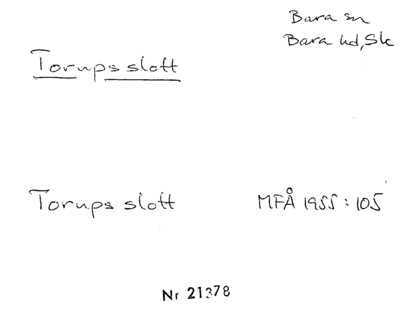 Bara sn
Bara hd, Sk
Torups slott
Torups slott MFÅ 1955:105
Nr 21378